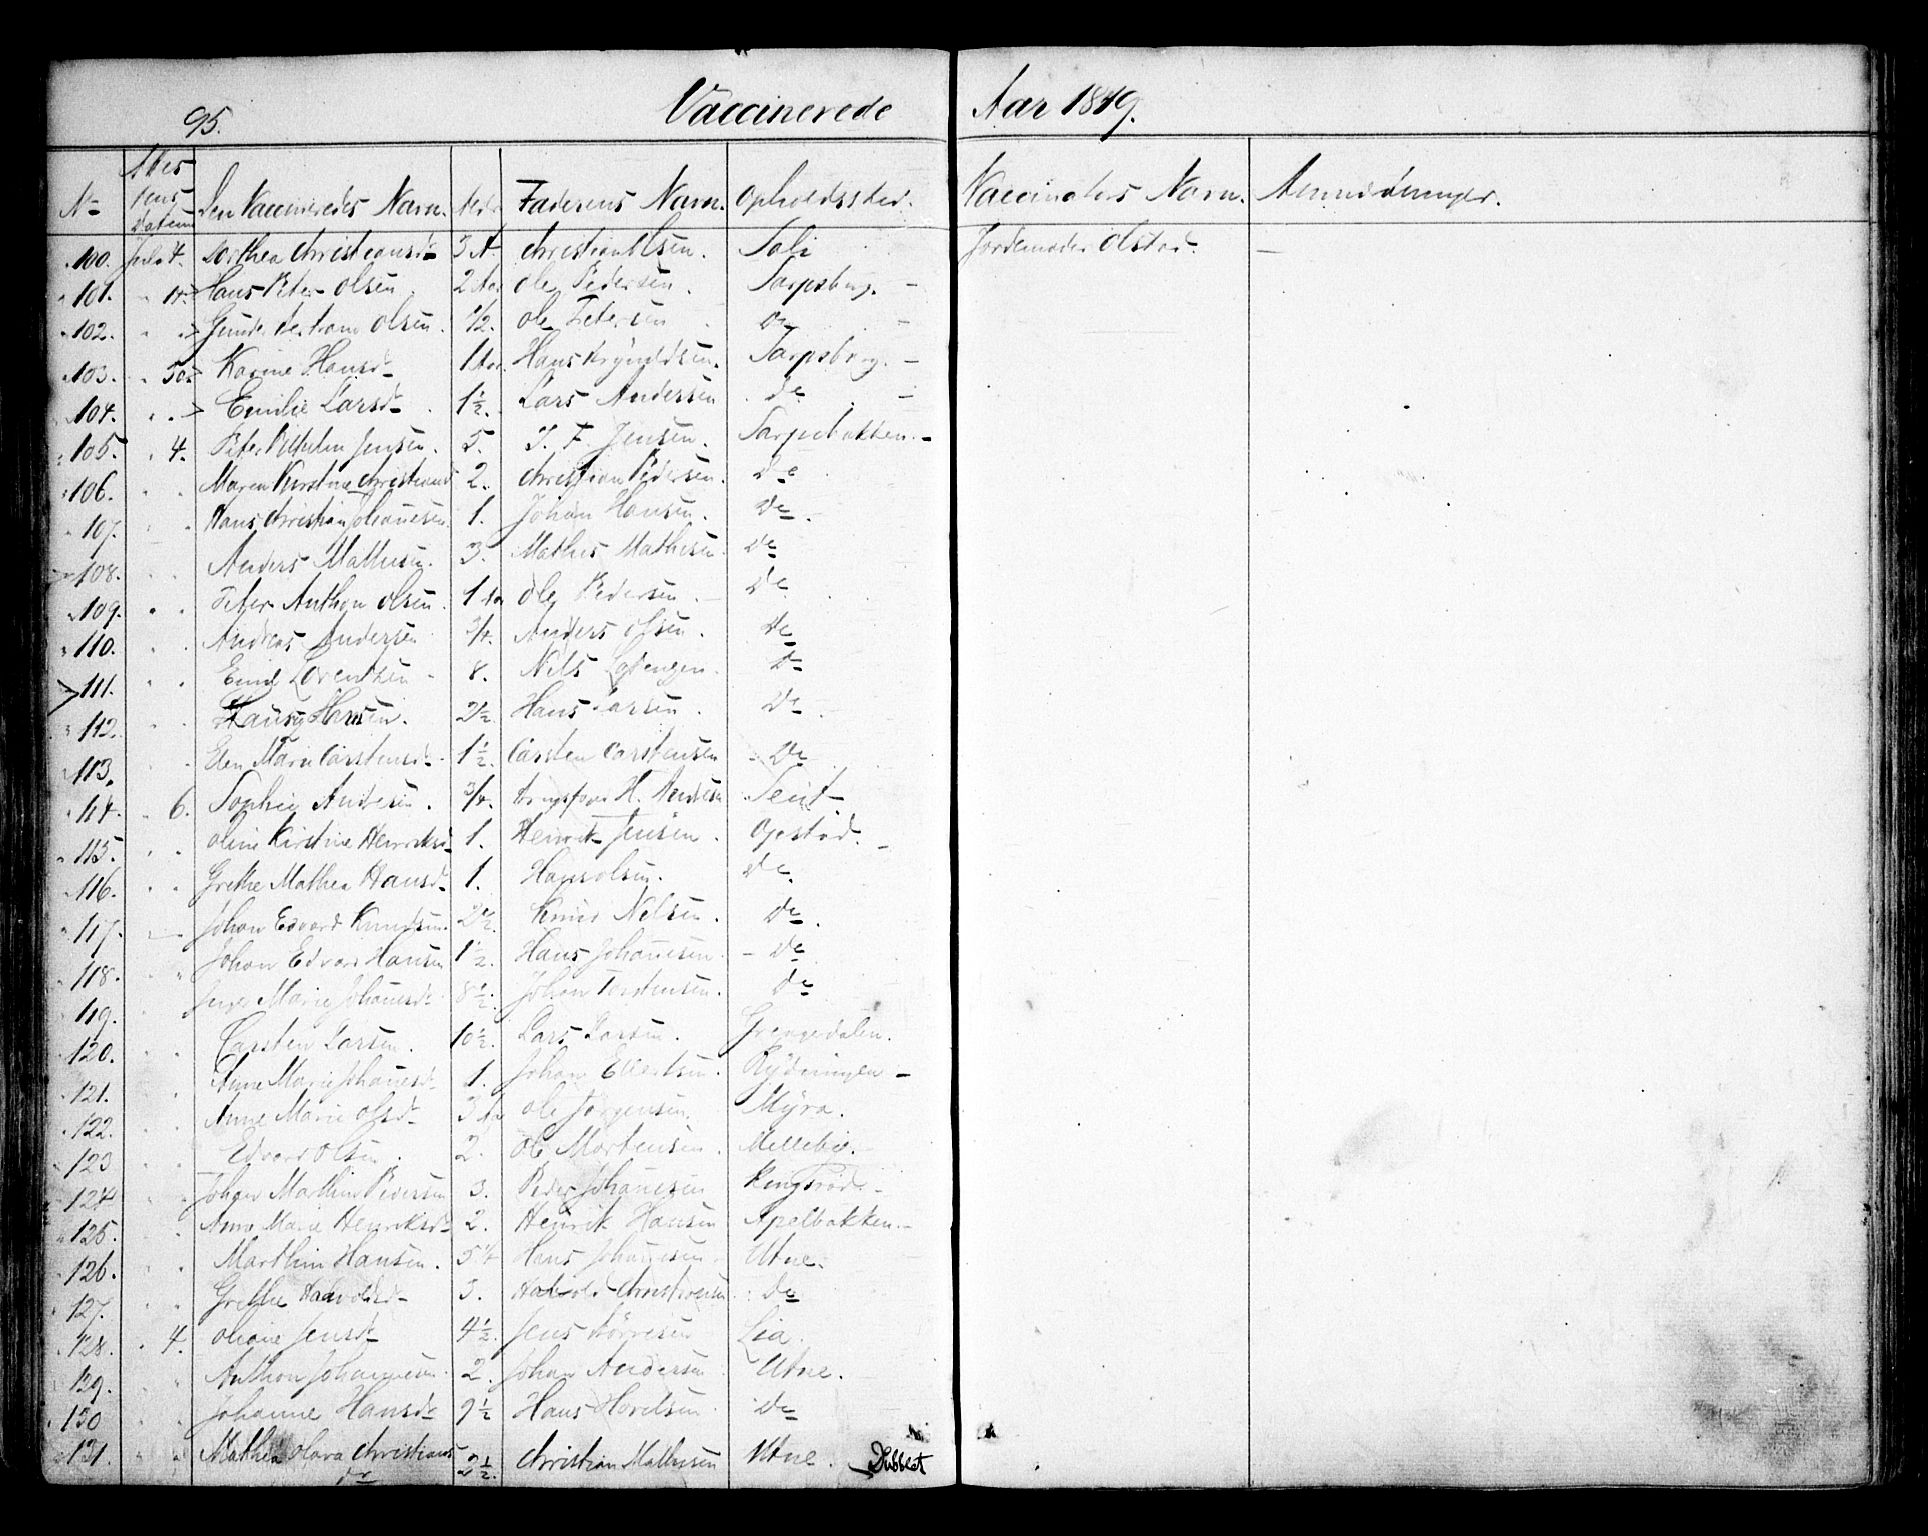 95.
Vaccinerede Aar 1849.
No Attestens Datum Den Vaccineredes Navn. Alder Faderens Navn. Opholdssted. Vaccinators Navn. Anmærkninger.
100. Juli 4. Dorthea Christiansd. 3 A. Christian Olsen. Sali Jordemoder Olstad. —
101. " 14 Hans Peter Olsen. 2 Aar Ole Pedersen. Sarpsborg. —
102. " " Olsen. 1/2. Ole Petersen do —
103. " 30 Karine Hansd. 1 Aar. Hans Brynildsen. Sarpsborg. —
104. " " Emilie Larsd. 1½. Lars Andersen do —
105. " 4. Peter Vilhelm Jensen. 5. J. F. Jensen. Sarpebakken. —
106. " " Maren Kirstine Christiansd 2. Christian Pedersen. do
107. " " Hans Christian Johanesen. 1. Johan Hansen. do.
108. " " Anders Mathisen. 3. Mathis Mathisen do
109. " " Peter Anthon Olsen. 1 Aar Ole Pedersen. do
110. " " Andreas Andersen 3/4. Anders Olsen. do
111. " " Emil Lorentsen 8. Nils do
112. " " Hansen. 2½. Hans Larsen. do
113. " " Elen Marie Carstensd. 1½. Carsten Carstensen do
114. " 6. Sophie Andersen. 3/4. H. Andersen
115. " " Oline Kirstine Henriksd. 1. Henrik Jensen. Opstad. —
116. " " Grethe Mathea Hansd. 1. Hans Olsen. do.
117. Johan Edvard Knudsen. 2½. Knud Nelsen. do.
118. " Johan Edvard Hansen 1½. Hans Johanesen. do
119. Inger Marie Johanesd. 8½. Johan Torstensen. do
120. " " Carsten Larsen. 10½. Lars Larsen. Grengedalen.
121. " " Anne Marie Johanesd. 1. Johan Evertsen. Rydningen —
122. " " Anne Marie Olsd. 3 Aar Ole Jørgensen. Myra.
123 " " Edvard Olsen. 2. Ole Mortensen. Mellebø. —
124 " " Johan Marthin Pedersen 3. Peder Johanesen Kingsrød. —
125. " " Anne Marie Henriksd. 2. Henrik Hansen Apelbakken. —
126. " " Marthin Hansen. 5 Hans Johanesen Utne.
127. " " Grethe Halvorsd. 3. Christensen do
128. " 4. Oliane Jensd. 4½. Jens Tørresen Lia.
129. " Anthon Johannesen. 2. Johan Andersen Utne.
130 " " Johanne Hansd. 9½ Hans do
131. " " Mathea Olava Christians
dr 2½. Christian Mathisen Utne. Dubblet